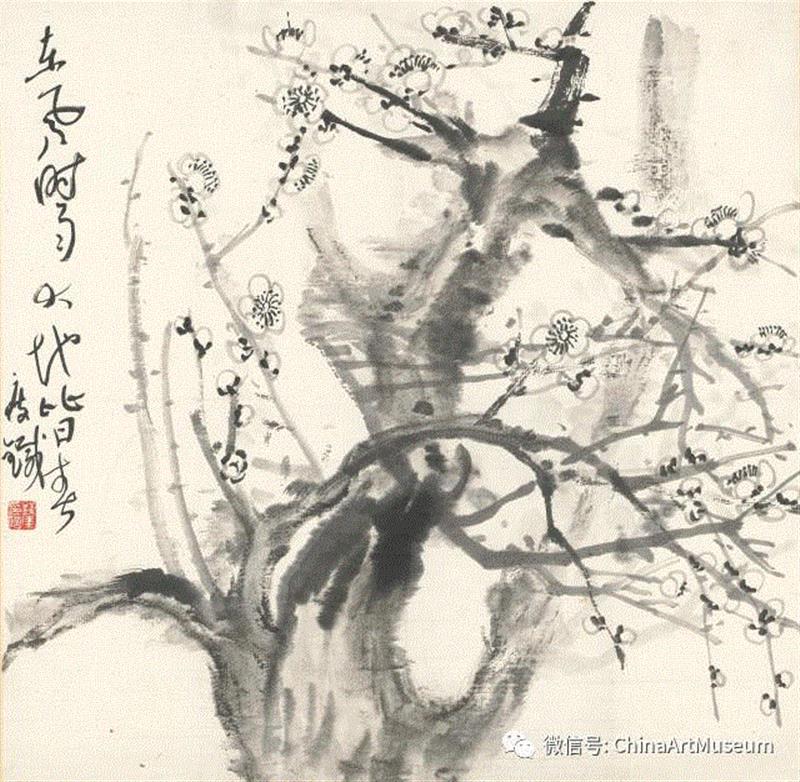 东风时雨大地皆春
瘦鐵
微信号: ChinaArtMuseum